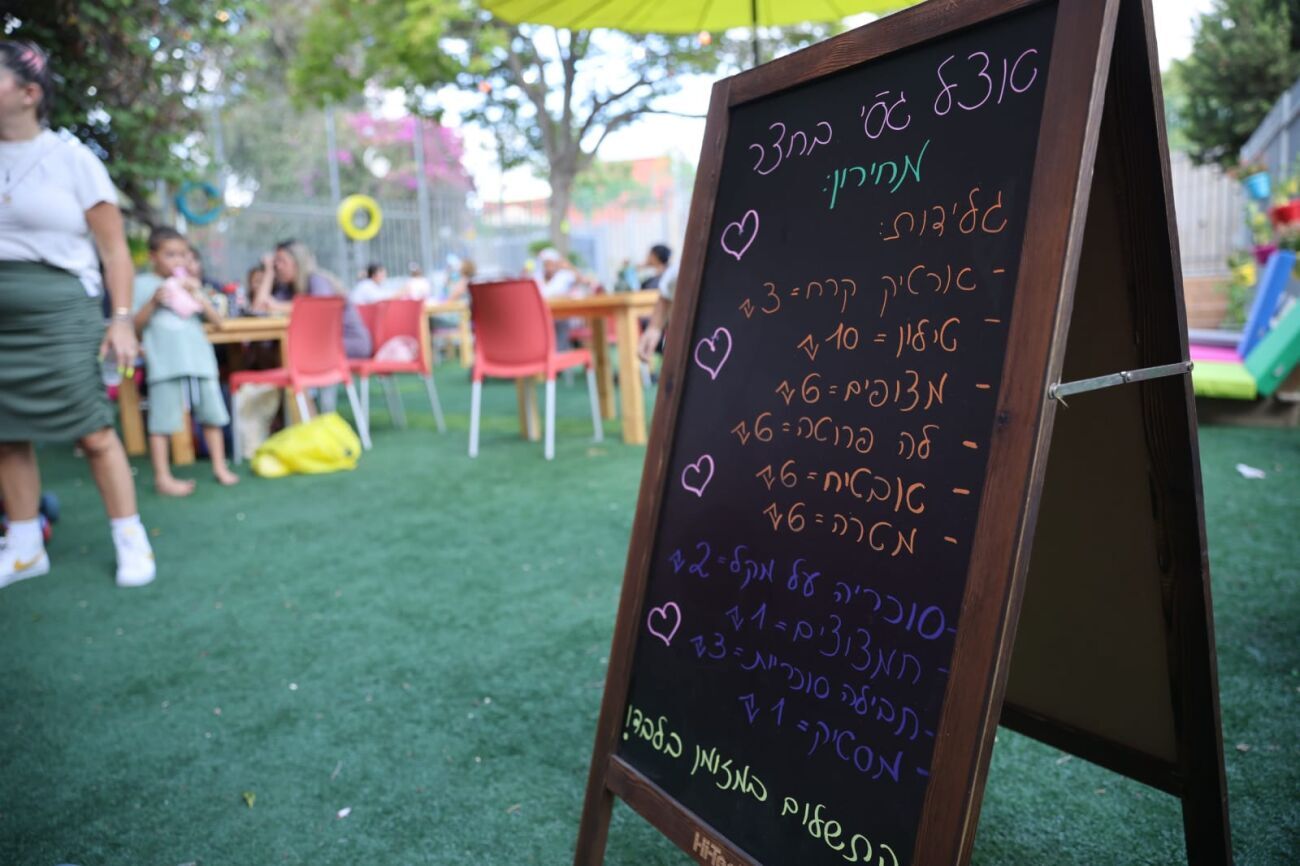 אוצל גסי בחצר
מחירון:
גלידות:
- ארטיק קרח = 3 ₪
- טילון = 10 ₪
- מצופים = 6 ₪
- לה פרוטה = 6 ₪
- אבטיח = 6 ₪
- מטרה = 6 ₪
- סוכריה על מקל = 2 ₪
- חמצוצים = 1 ₪
- חבילה סוכריות = 3 ₪
- מסטיק = 1 ₪
התשלום במזומן בלבד!